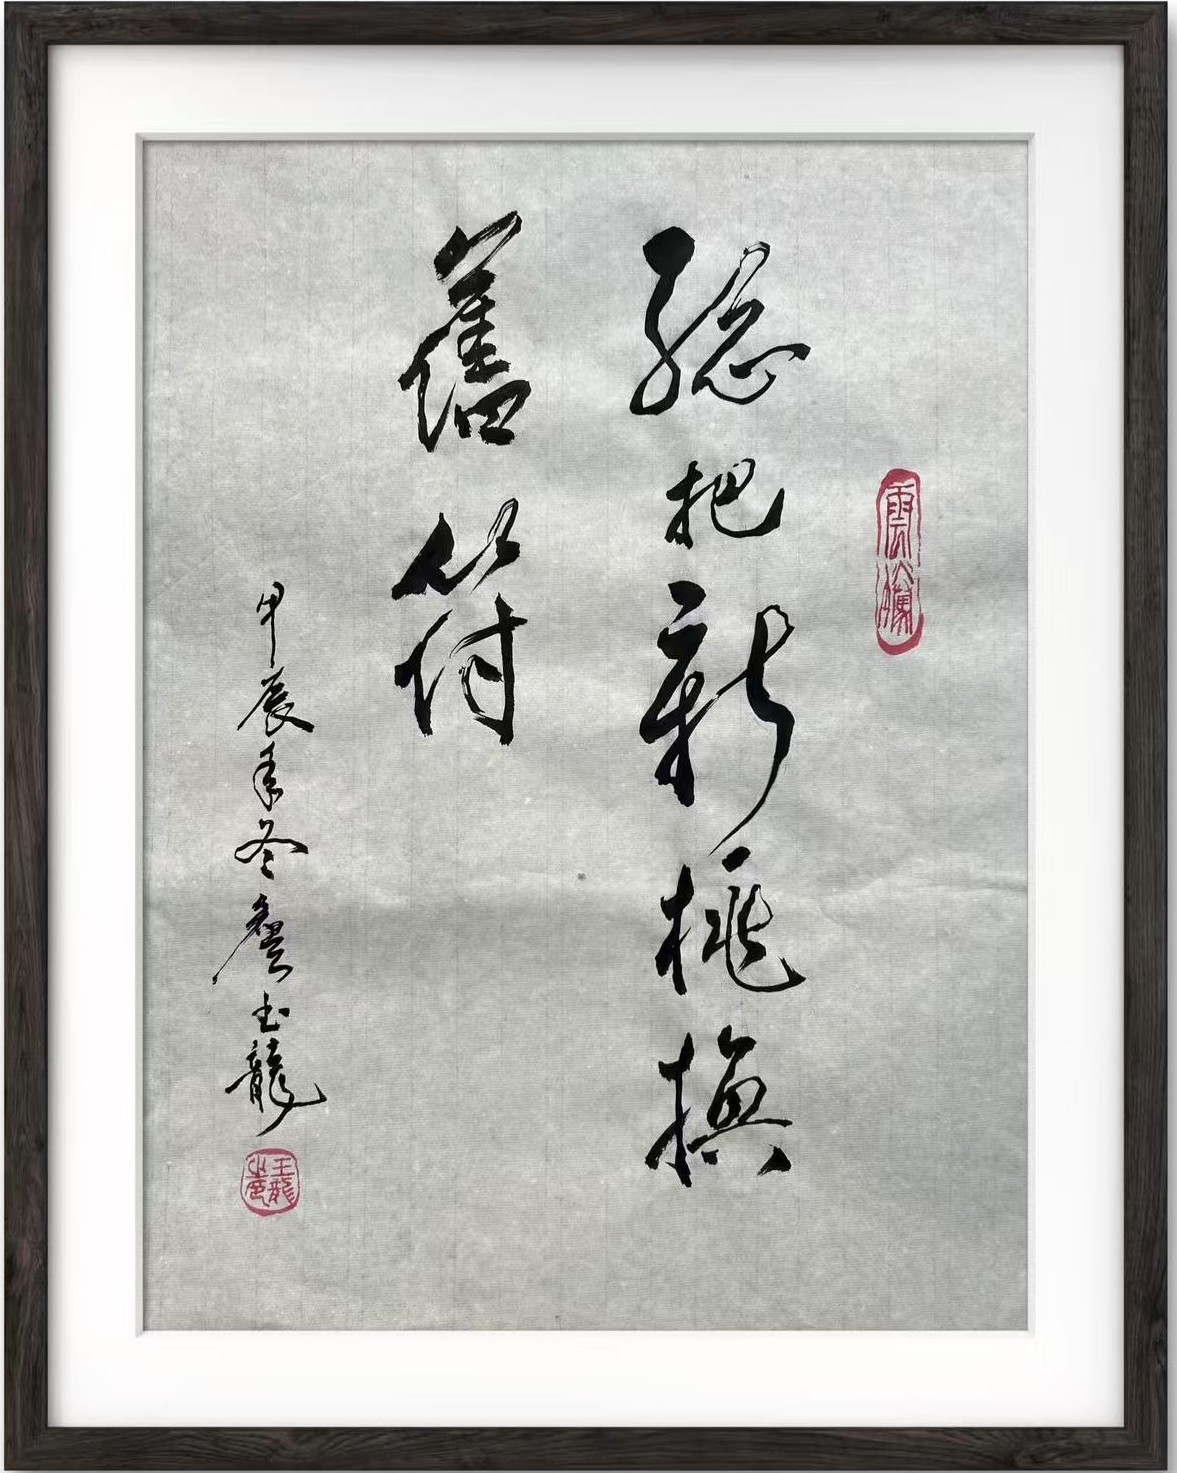 總把新桃換
舊符
甲辰年冬詹玉龍